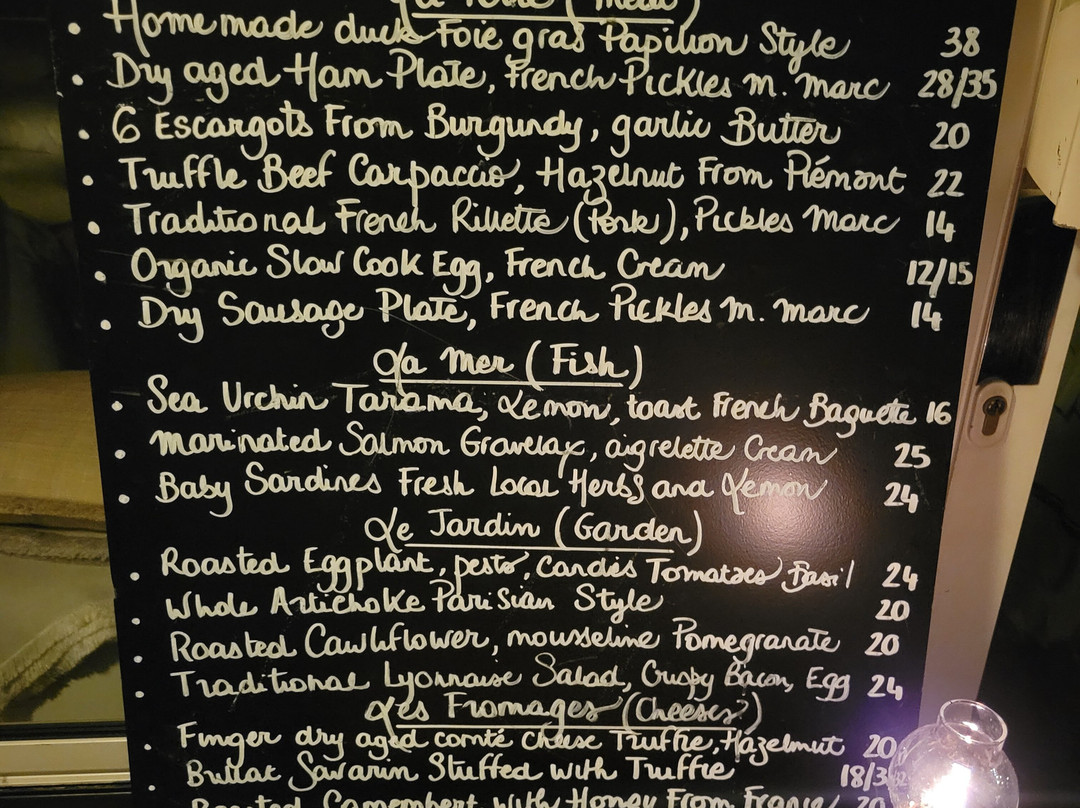 La Terre (Meat)
• Homemade duck Foie gras Papillon Style 38
• Dry aged Ham Plate, French Pickles M. Marc 28/35
• 6 Escargots From Burgundy, garlic Butter 20
• Truffle Beef Carpaccio, Hazelnut From Piémont 22
• Traditional French Rillette (Pork), Pickles Marc 14
• Organic Slow Cook Egg, French Cream 12/15
• Dry Sausage Plate, French Pickles M. Marc 14
La Mer (Fish)
• Sea Urchin Tarama, Lemon, toast French Baguette 16
• Marinated Salmon Gravelax, aigrelette Cream 25
• Baby Sardines Fresh Local Herbs and Lemon 24
Le Jardin (Garden)
• Roasted Eggplant, pesto, candies Tomatoes Basil 24
• Whole Artichoke Parisian Style 20
• Roasted Cauliflower, mousseline Pomegranate 20
• Traditional Lyonnaise Salad, Crispy Bacon, Egg 24
Les Fromages (Cheeses)
• Finger dry aged comté cheese Truffle, Hazelnut 20
• Brillat Savarin Stuffed with Truffle 18/3
Roasted Camembert with Honey From France 20